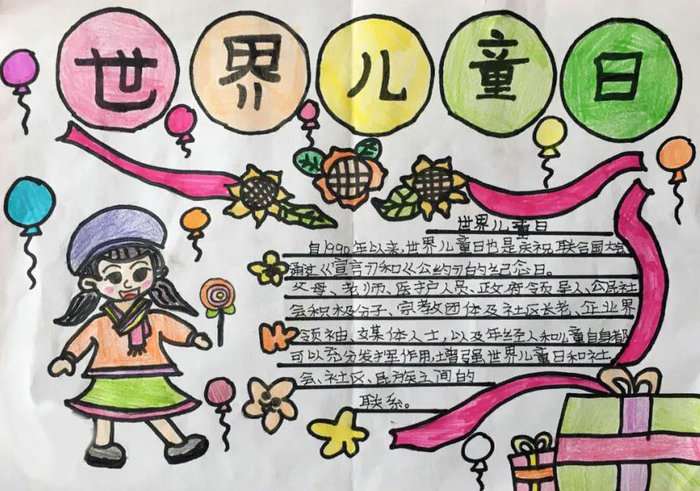 世界儿童日
世界儿童日
自1990年以来,世界儿童日也是庆祝联合国大会
通过《宣言》和《公约》的纪念日。
父母、教师、医护人员、政府领导人、公民社
会积极分子、宗教团体及社区长老、企业界
领袖、媒体人士,以及年轻人和儿童自身都
可以充分发挥作用,增强世界儿童日和社
会、社区、民族之间的
联系。